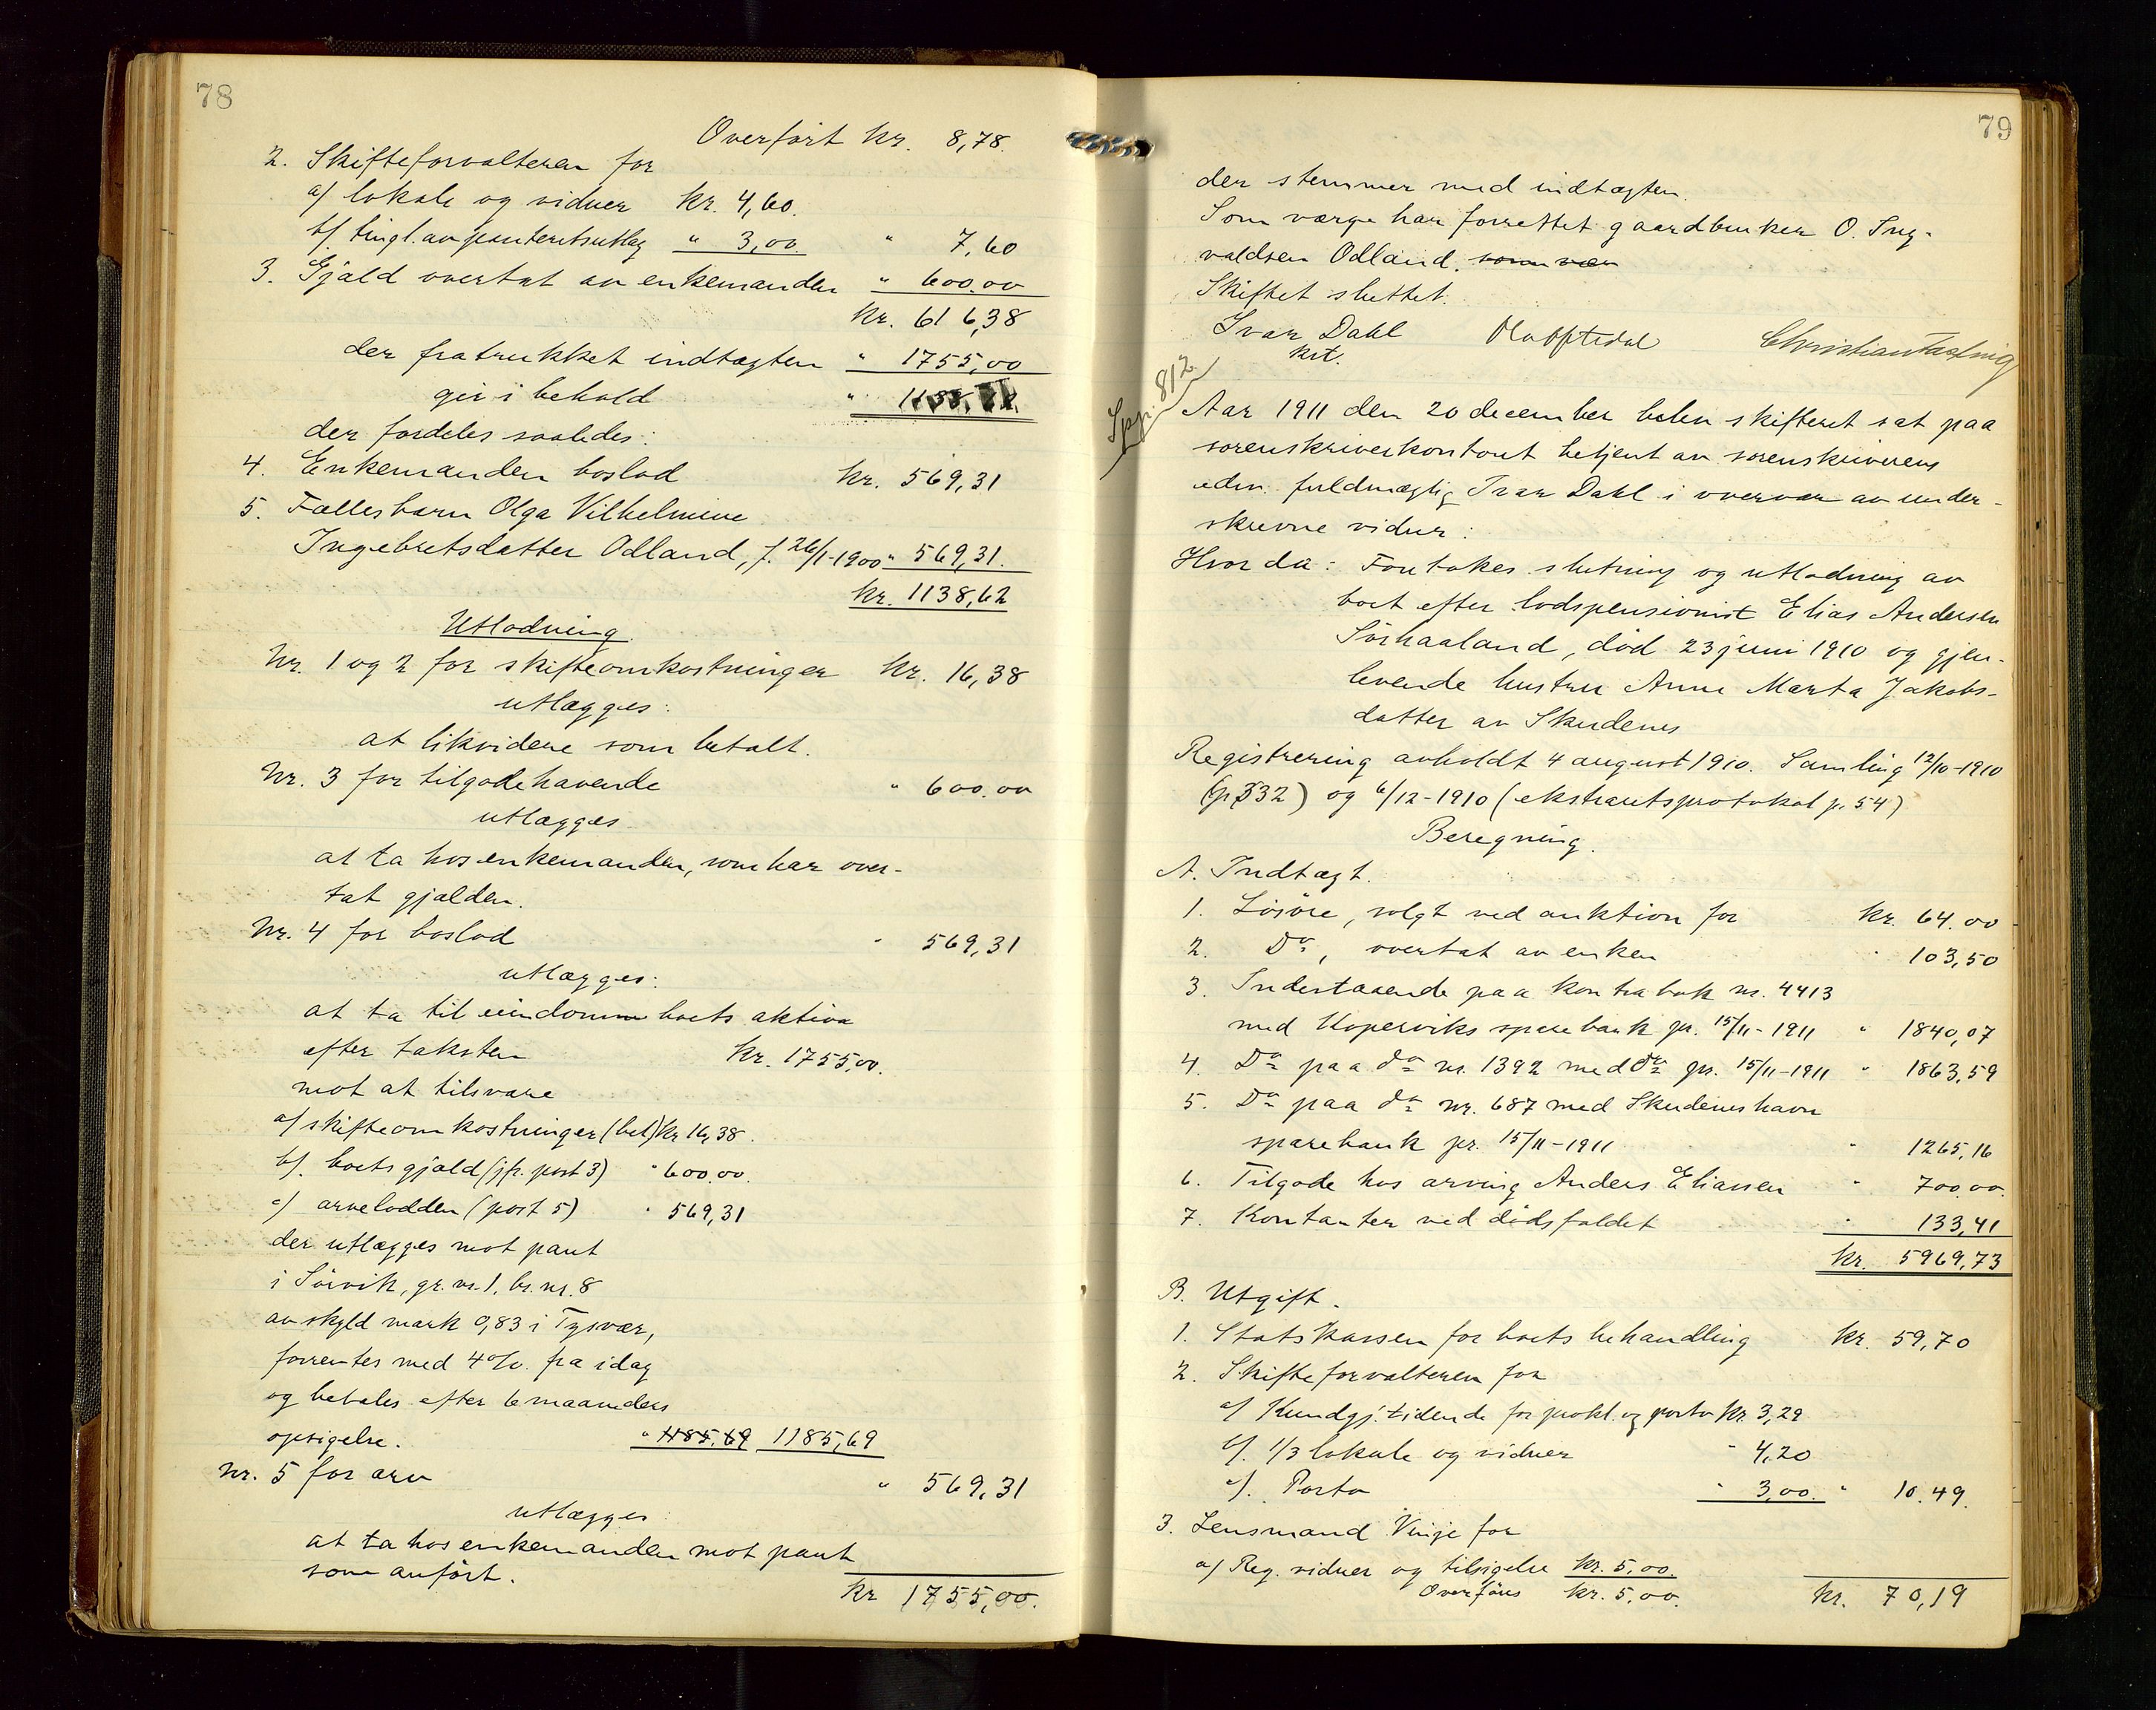 78
Overført kr. 8,78.
2. Skifteforvalteren for
a/ lokale og vidner kr. 4,60.
b/. tingl. av panteretsutlæg " 3,00. " 7,60
3. Gjæld overtat av enkemanden " 600.00
kr. 616,38
der fratrukket indtægten " 1755,00
gir i behold " 1138,62.
der fordeles saaledes:
4. Enkemanden boslod kr. 569,31
5. Fællesbarn Olga Vilhelmine
Ingebretsdatter Odland, f. 26/1-1900 " 569,31.
kr. 1138,62
Utlodning.
Nr. 1 og 2 for skifteomkostninger kr. 16,38
utlægges:
at likvidere som betalt.
Nr. 3 for tilgodehavende " 600.00
utlægges
at ta hos enkemanden, som har over-
tat gjælden.
Nr. 4 for boslod " 569,31
utlægges:
at ta til eiendom boets aktiva
efter taksten kr. 1755,00.
mot at tilsvare
a/ skifteomkostninger (bet) kr 16,38.
b/. boets gjæld (jfr. post 3) " 600.00.
c/ arvelodden (post 5) " 569,31
der utlægges mot pant
i Sörvik, gr. nr. 1, br. nr. 8
av skyld mark 0,83 i Tysvær,
forrentes med 4%. fra idag
og betales efter 6 maaneders
opsigelse. " 1185,69 1185,69
Nr. 5 for arv " 569,31
utlægges:
at ta hos enkemanden mot pant
som anført.
kr 1755,00.
79
der stemmer med indtægten.
Som værge har forrettet gaardbruker O. Ing-
valdsen Odland. som vær
Skiftet sluttet.
Ivar Dahl
kst.
Spp. 812
Aar 1911 den 20 december blev skifteret sat paa
sorenskriverkontoret betjent av sorenskriverens
edsv. fuldmægtig Ivar Dahl i overvær av under-
skrevne vidner:
Hvor da: Foretokes slutning og utlodning av
boet efter lodspensionist Elias Andersen
Sörhaaland, død 23 juni 1910 og gjen-
levende hustru Anne Marta Jakobs-
datter av Skudenes
Registrering avholdt 4 august 1910. Samling 12/10-1910
(p. 332) og 6/12-1910 (ekstraretsprotokol p. 54)
Beregning.
A. Indtægt.
1. Løsøre, solgt ved auktion for kr. 64.00
2. Do, overtat av enken " 103,50
3. Indestaaende paa kontrabok nr. 4413
med Kopervik sparebank pr. 15/11-1911 " 1840,07
4. Do paa do nr. 1392 med do pr. 15/11-1911 " 1863,59
5. Do paa do nr. 687 med Skudeneshavn
sparebank pr. 15/11-1911 " 1265,16
6. Tilgode hos arving Anders Eliassen " 700.00.
7. Kontanter ved dödsfaldet " 133,41
kr. 5969,73
B. Utgift.
1. Statskassen for boets behandling kr. 59,70
2. Skifteforvalteren for
a/ Kundgj. tidende for prokl. og porto kr. 3,29
b/. 1/3 lokale og vidner " 4,20
c/. Porto " 3,00. " 10.49.
3. Lensmand Vinje for
a/ Reg. vidner og tilsigelse kr. 5,00.
Overføres kr. 5,00. kr. 70,19